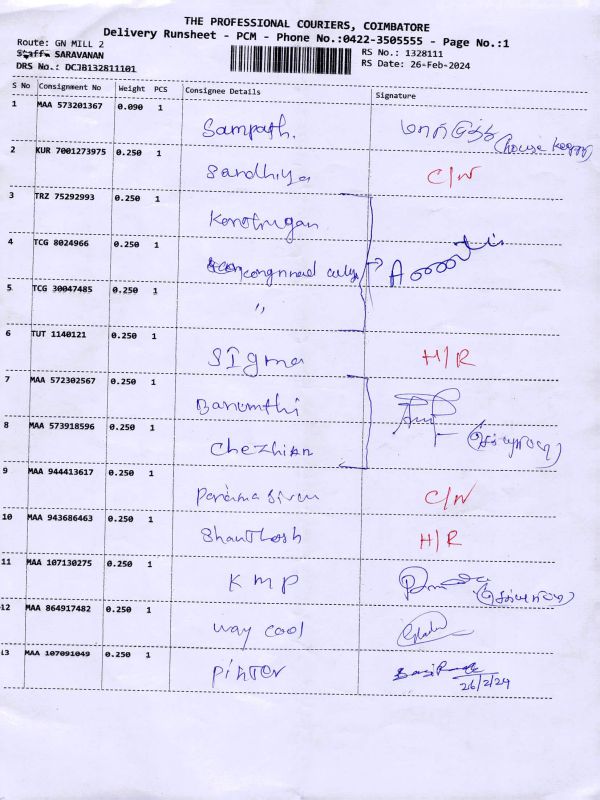 THE PROFESSIONAL COURIERS, COIMBATORE
Delivery Runsheet - PCM - Phone No.:0422-3505555 - Page No.:1
Route: GN MILL 2
Staff: SARAVANAN
DRS No.: DCJB132811101
RS No.: 1328111
RS Date: 26-Feb-2024
S No Consignment No Weight PCS Consignee Details Signature
1 MAA 573201367 0.090 1 Sampath.
2 KUR 7001273975 0.250 1 Sandhiya C/N
3 TRZ 75292993 0.250 1
4 TCG 8024966 0.250 1
5 TCG 30047485 0.250 1 "
6 TUT 1140121 0.250 1 SIgma H/R
7 MAA 572302567 0.250 1 Banumthi
8 MAA 573918596 0.250 1 Chezhian
9 MAA 944413617 0.250 1 Parama Sivan C/N
10 MAA 943686463 0.250 1 Shanthosh H/R
11 MAA 107130275 0.250 1 KMP
12 MAA 864917482 0.250 1 way cool
13 MAA 107091049 0.250 1
26/2/24